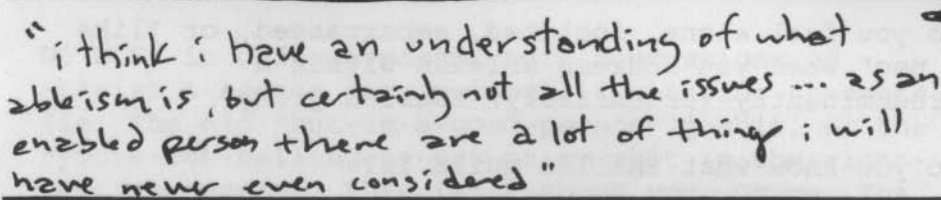 "i think i have an understanding of what
ableism is, but certainly not all the issues ... as an
enabled person there are a lot of things i will
have never even considered"